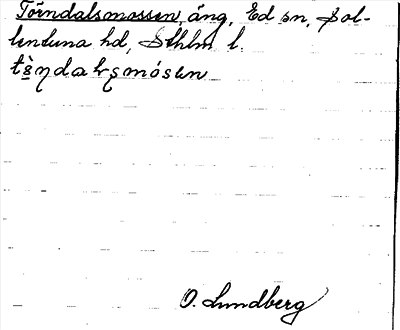 Törndalsmossen, äng, Ed sn, Sol-
lentuna hd, Sthlm l.
O. Lundberg